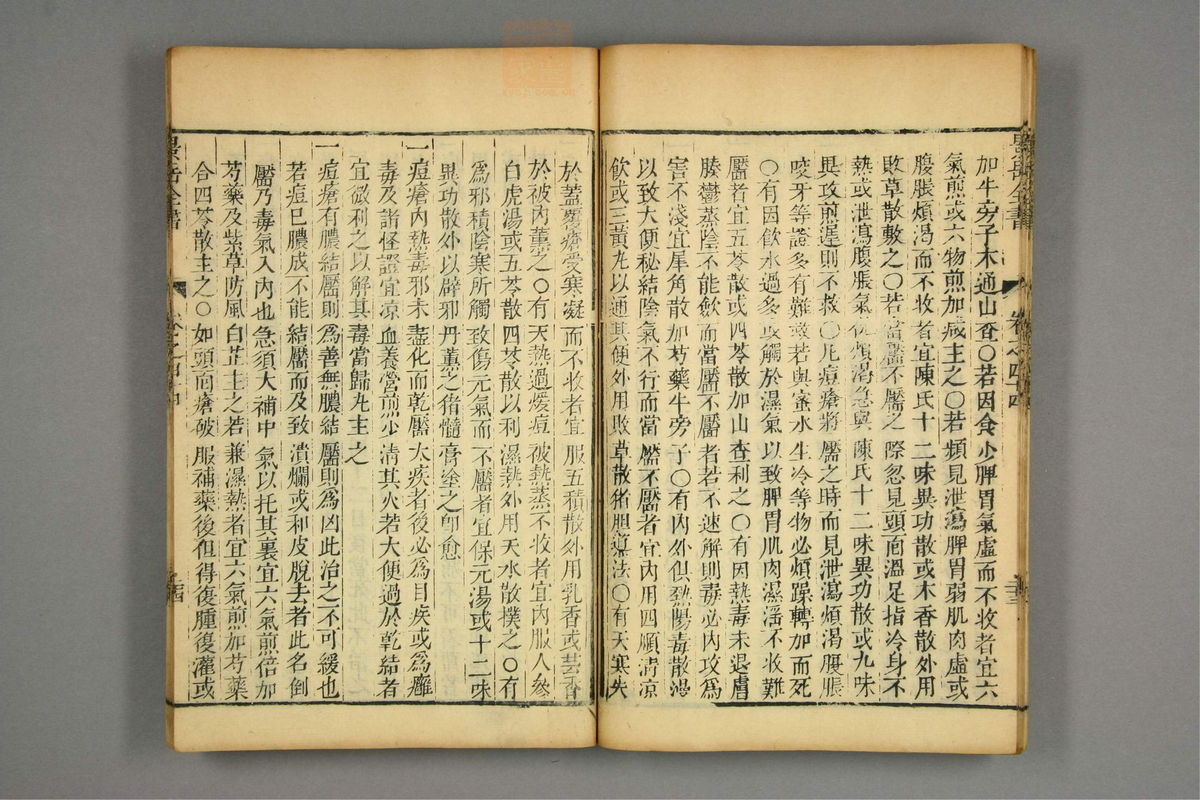 景岳全書 卷之四十四
加牛旁子木通山查〇若因食少脾胃氣虛而不收者宜六
氣煎或六物煎加減主之〇若頻見泄瀉脾胃弱肌肉虛或
腹脹煩渴而不收者宜陳氏十二味異功散或木香散外用
敗草散敷之〇若當靨不靨之際忽見頭面溫足指冷身不
熱或泄瀉腹脹氣促煩渴急與陳氏十二味異功散或九味
異攻煎遲則不救〇凡痘瘡將靨之時而見泄瀉煩渴腹脹
咬牙等證多有難救若與蜜水生冷等物必煩躁轉加而死
〇有因飲水過多或觸於濕氣以致脾胃肌肉濕淫不收難
靨者宜五苓散或四苓散加山查利之〇有因熱毒未退膚
腠鬱蒸陰不能斂而當靨不靨者若不速解則毒必內攻爲
害不淺宜犀角散加芍藥牛旁子〇有內外俱熱陽毒散漫
以致大便秘結陰氣不行而當靨不靨者宜內用四順清凉
飲或三黃丸以通其便外用敗草散猪胆導法〇有天寒失
於蓋覆瘡受寒凝而不收者宜服五積散外用乳香或芸香
於被內薰之〇有天熱過煖痘被熱蒸不收者宜內服人參
白虎湯或五苓散四苓散以利濕熱外用天水散撲之〇有
爲邪積陰寒所觸致傷元氣而不靨者宜保元湯或十二味
異功散外以辟邪丹薰之猪髓膏塗之卽愈
一痘瘡內熱毒邪未盡化而乾靨太疾者後必爲目疾或爲癰
毒及諸怪證宜凉血養營煎少清其火若大便過於乾結者
宜微利之以解其毒當歸丸主之
一痘瘡有膿結靨則爲善無膿結靨則爲凶此治之不可緩也
若痘已膿成不能結靨而及致潰爛或和皮脫去者此名倒
靨乃毒氣入內也急須大補中氣以托其裏宜六氣煎倍加
芍藥及紫草防風白芷主之若兼濕熱者宜六氣煎加芍藥
合四苓散主之〇如頭面瘡破服補藥後但得復腫復灌或
景岳全書